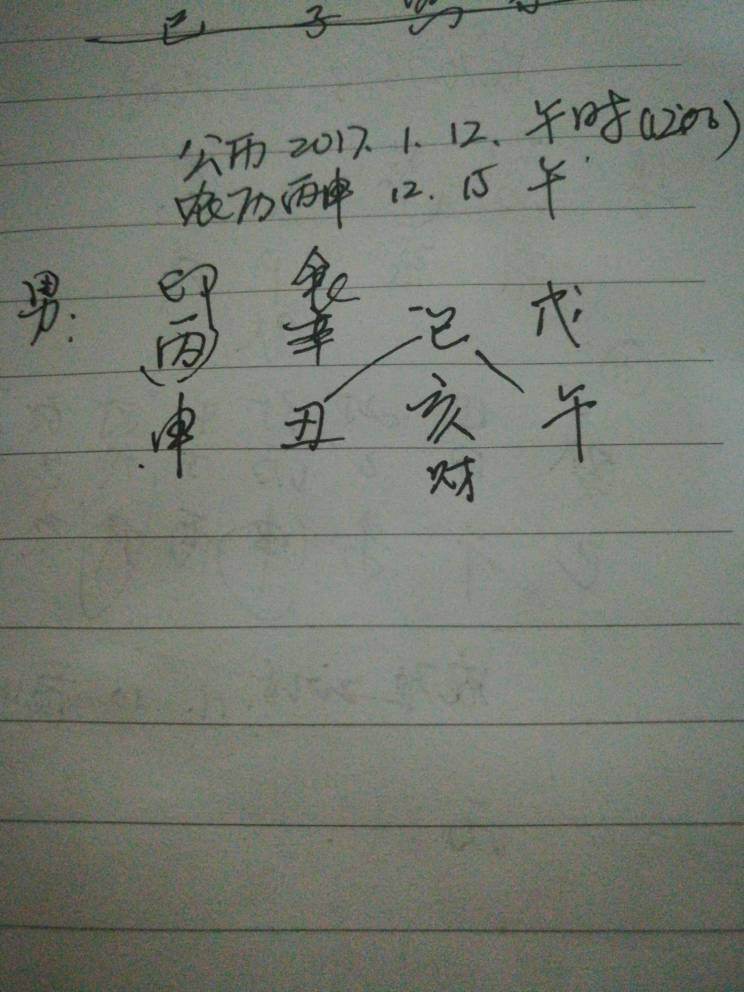 公历 2017. 1. 12. 午时(12:00)
农历丙申 12. 15 午
男: 印 食
丙 辛 己 戊
申 丑 亥 午
财